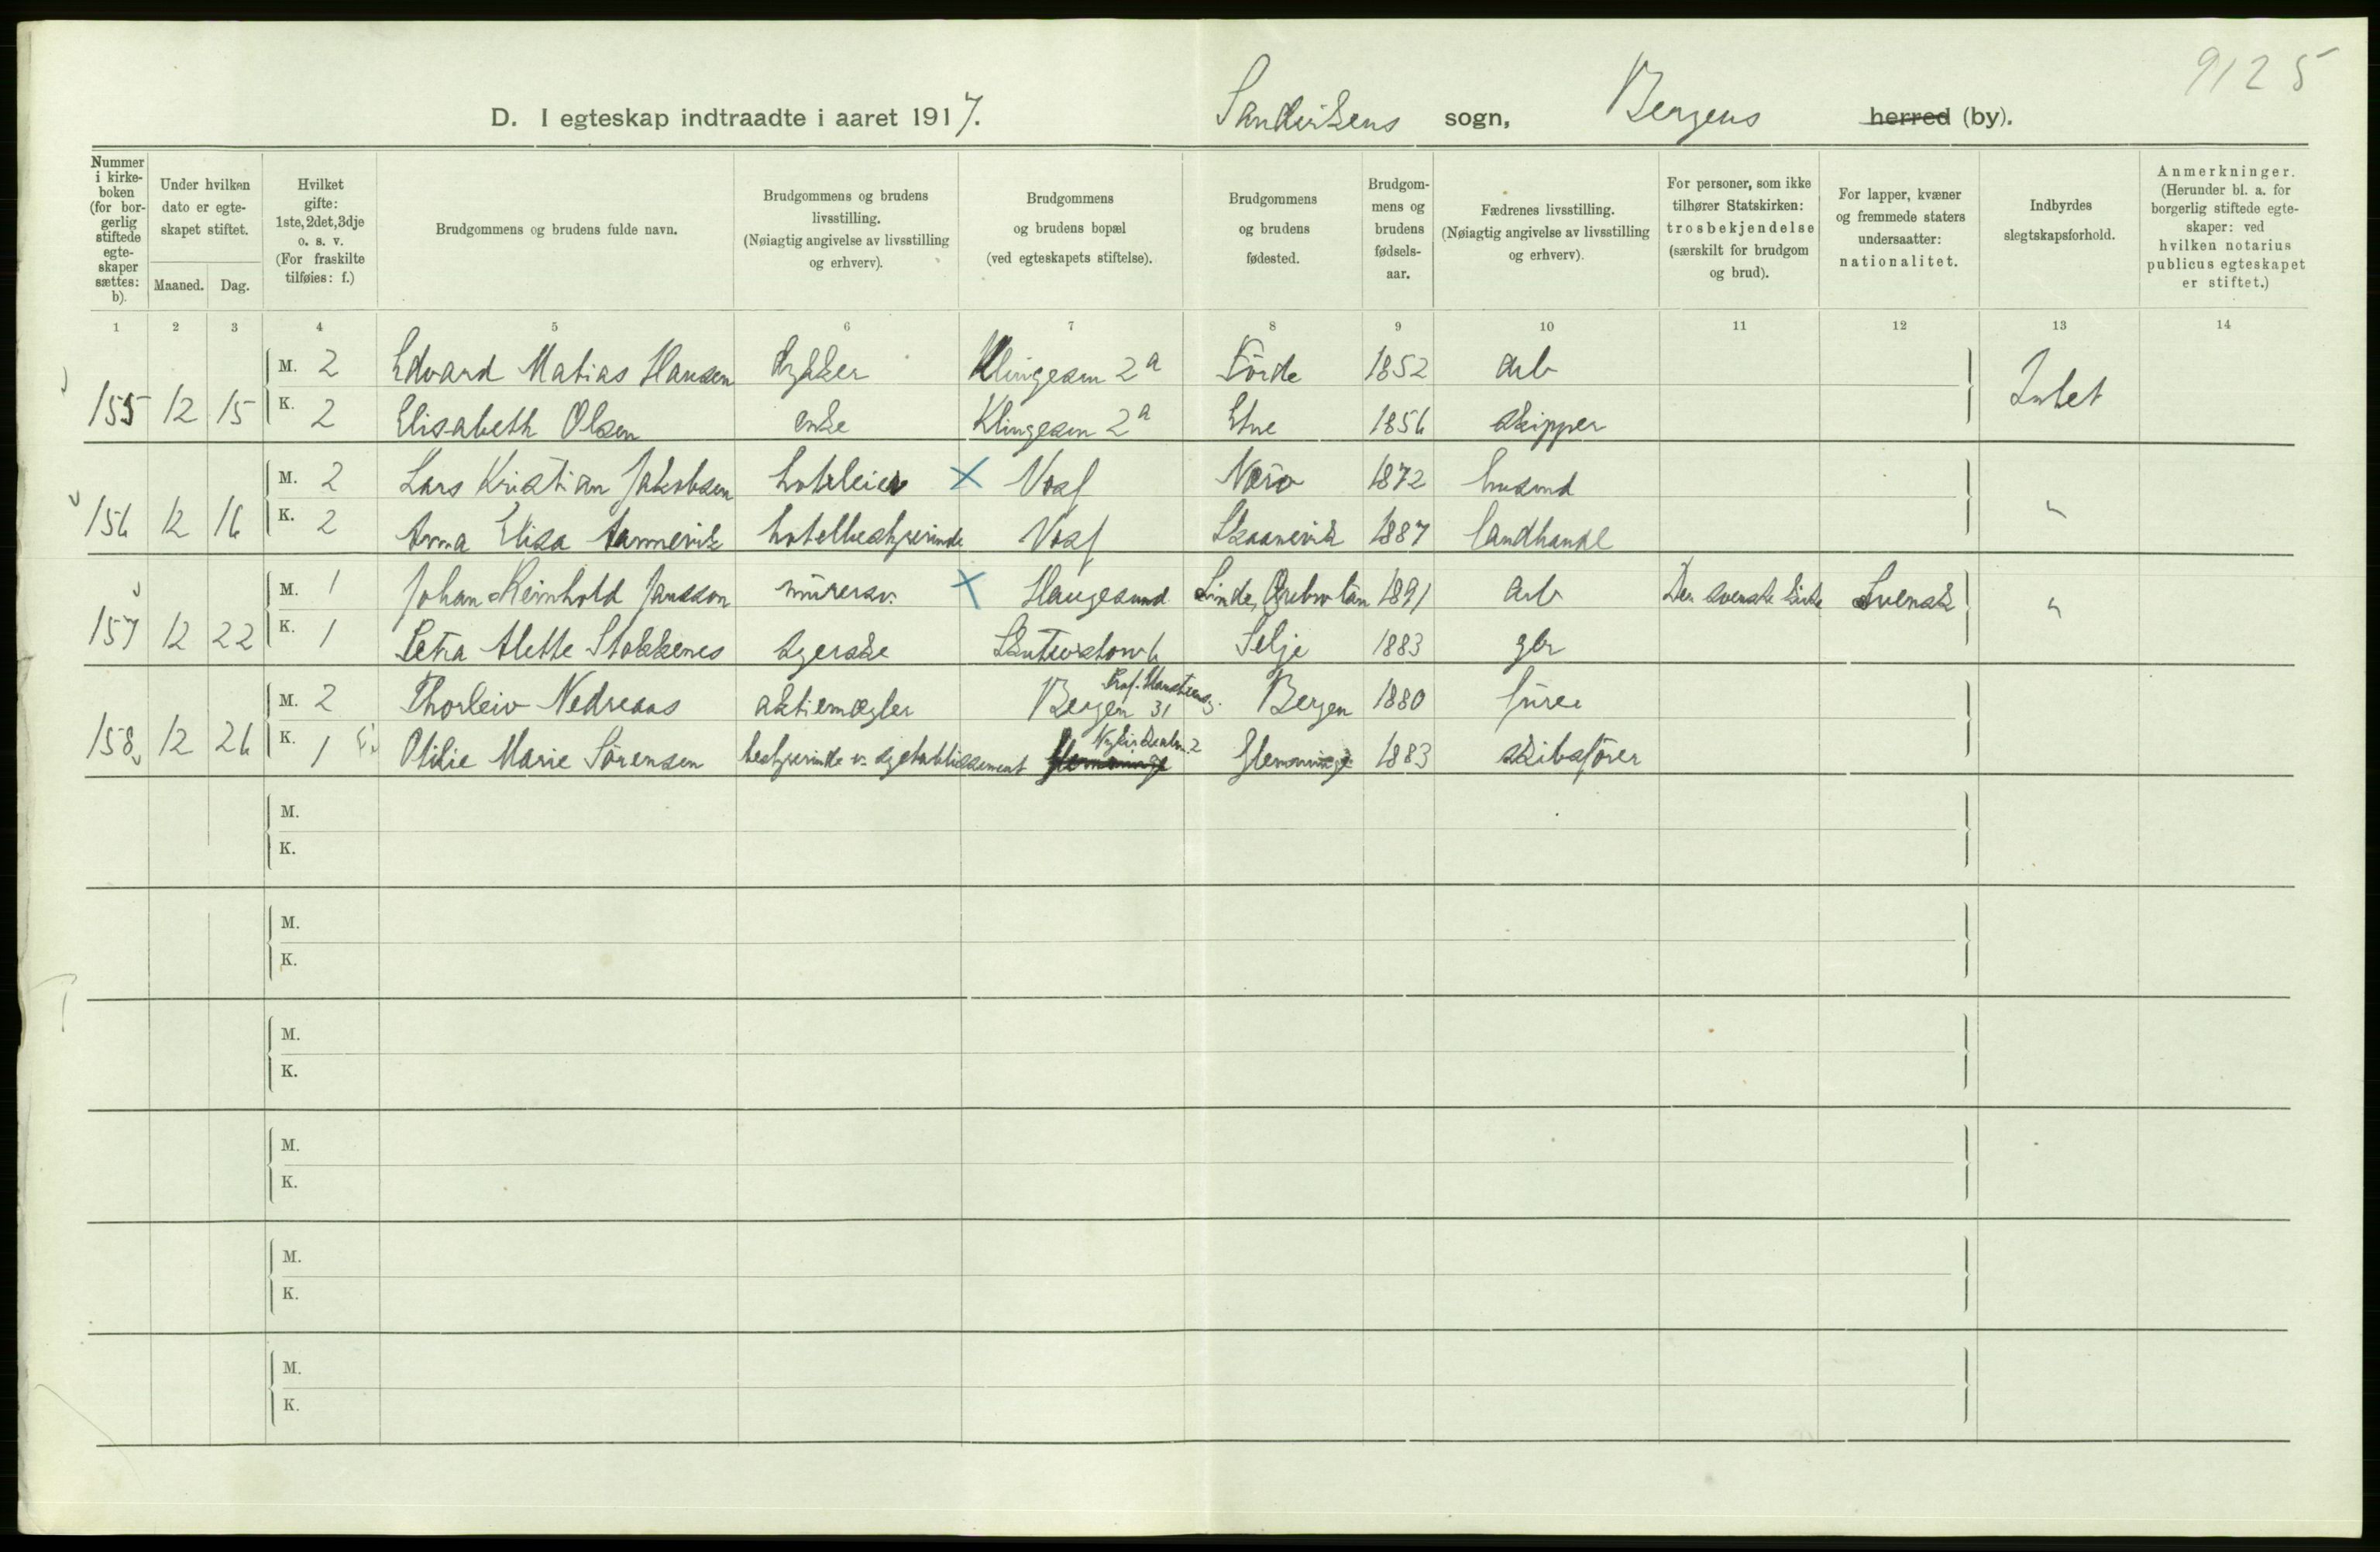 9125
D. I egteskap indtraadte i aaret 1917. Sandvikens sogn, Bergens herred (by).
Nummer i kirkeboken (for borgerlig stiftede egteskaper sættes: b).
Under hvilken dato er egteskapet stiftet.
Maaned. Dag.
Hvilket gifte: 1ste, 2det, 3dje o. s. v. (For fraskilte tilføies: f.)
Brudgommens og brudens fulde navn.
Brudgommens og brudens livsstilling. (Nøiagtig angivelse av livsstilling og erhverv).
Brudgommens og brudens bopæl (ved egteskapets stiftelse).
Brudgommens og brudens fødested.
Brudgommens og brudens fødselsaar.
Fædrenes livsstilling. (Nøiagtig angivelse av livsstilling og erhverv).
For personer, som ikke tilhører Statskirken: trosbekjendelse (særskilt for brudgom og brud).
For lapper, kvæner og fremmede staters undersaatter: nationalitet.
Indbyrdes slegtskapsforhold.
Anmerkninger. (Herunder bl. a. for borgerlig stiftede egteskaper: ved hvilken notarius publicus egteskapet er stiftet.)
1 2 3 4 5 6 7 8 9 10 11 12 13 14
M. 2 Edvard Matias Hansen dykker Klingesm 2a Förde 1852 arb
155 12 15 K. 2 Elisabeth Olsen enke Klingesm 2a Etne 1856 skipper Intet
M. 2 Lars Kristian Jakobsen hoteleier X Voss Nærø 1872 husmd
156 12 16 K. 2 Anna Elisa hotelbestyrerinde Voss Skaanevik 1887 landhandl "
M. 1 Johan Reinhold Jansson murersv. X Haugesund Linde, Örebro län 1891 arb Den svenske kirke Svensk
157 12 22 K. 1 Petra Alette Stokkenes syerske Selje 1883 gbr "
M. 2 Thorleiv Nedreaas aktiemægler Bergen 31 Bergen 1880
158 12 26 K. 1 Otilie Marie Sörensen bestyrerinde v. syetablissement Glemminge 1883 skibsförer
M.
K.
M.
K.
M.
K.
M.
K.
M.
K.
M.
K.